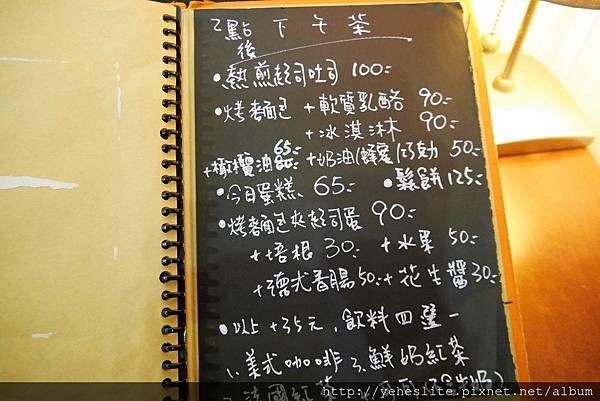 2點下午茶
後
•熱煎起司吐司 100.-
•烤麵包+軟質乳酪 90.-
+冰淇淋 90.-
65.-
+橄欖油 +奶油/蜂蜜/巧克力 50.-
•今日蛋糕、65.- •鬆餅125.-
•烤麵包夾起司蛋 90.-
+培根 30.- +水果 50.-
+德式香腸50.- +花生醬30.-
•以上+35元,飲料四選一
1.美式咖啡 3.鮮奶紅茶
http://yeheslite.pixnet.net/album